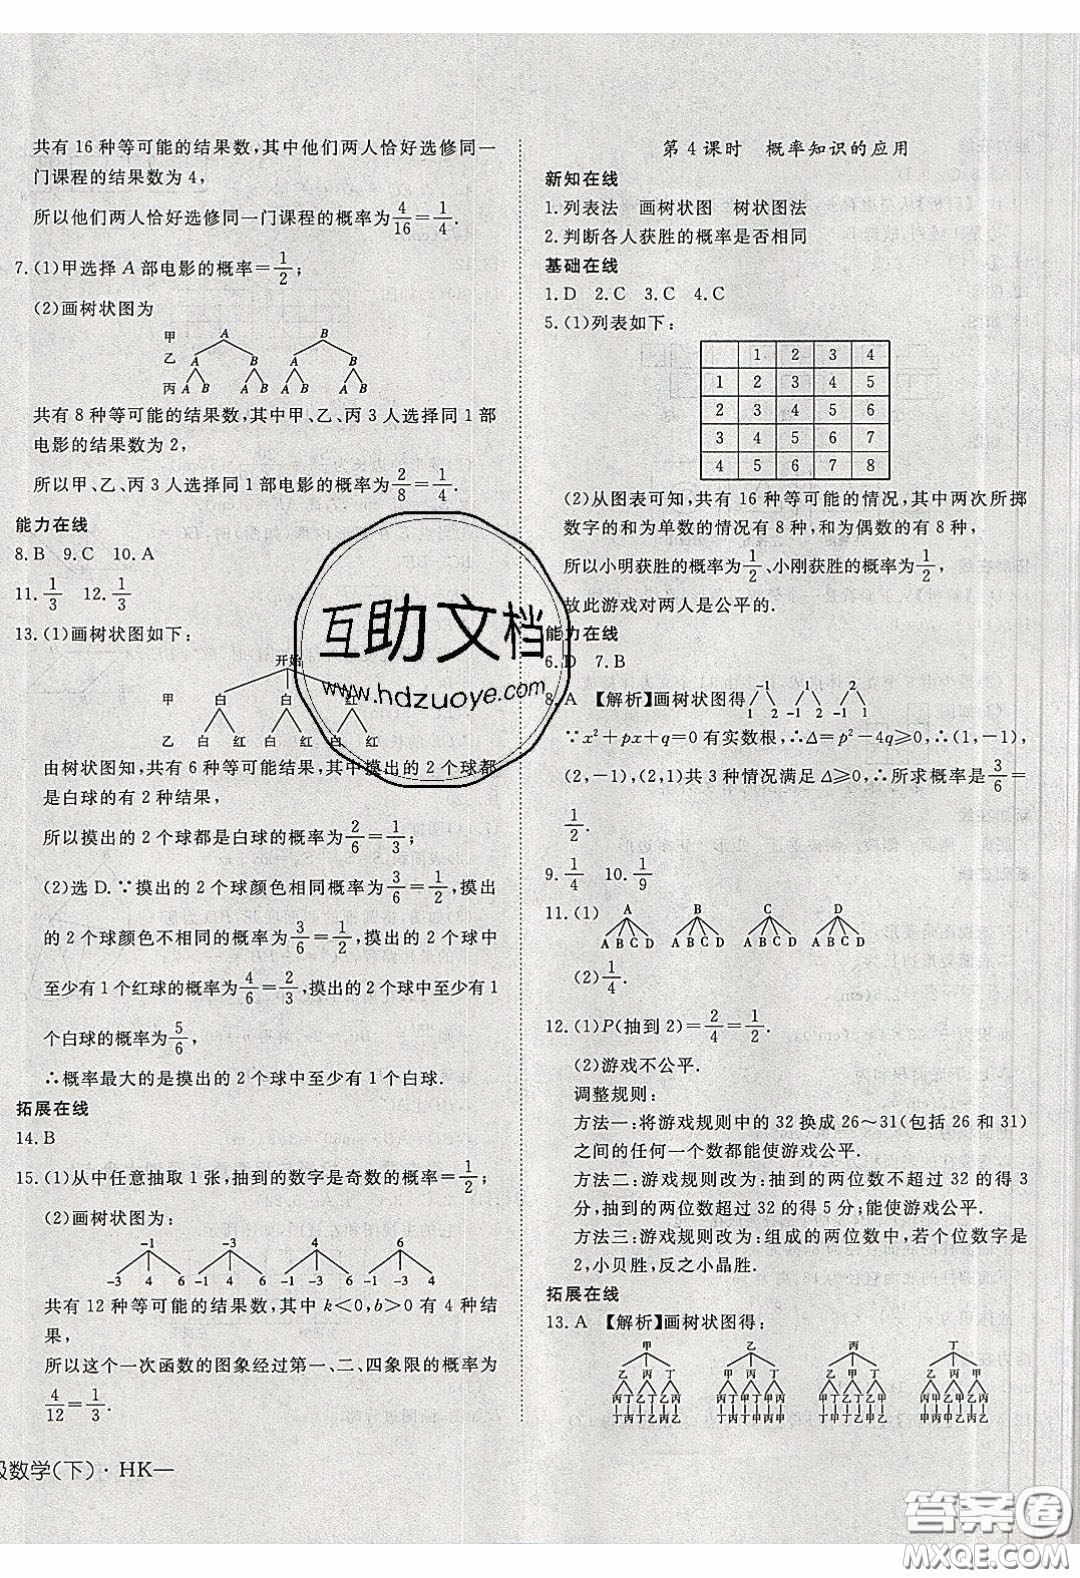 共有 16 种等可能的结果数,其中他们两人恰好选修同一
门课程的结果数为 4,
所以他们两人恰好选修同一门课程的概率为4/16=1/4.
7.(1)甲选择 A 部电影的概率=1/2;
(2)画树状图为
甲 A B
乙 A B A B
丙 A B A B A B A B
共有 8 种等可能的结果数,其中甲、乙、丙 3 人选择同 1 部
电影的结果数为 2,
所以甲、乙、丙 3 人选择同 1 部电影的概率=2/8=1/4.
能力在线
8.B 9.C 10.A
11.1/3 12.1/3
13.(1)画树状图如下:
开始
甲 白 白 红
乙 白 红 白 红 白 红
由树状图知,共有 6 种等可能结果,其中摸出的 2 个球都
是白球的有 2 种结果,
所以摸出的 2 个球都是白球的概率为2/6=1/3;
(2)选 D.∵摸出的 2 个球颜色相同概率为3/6=1/2,摸出
的 2 个球颜色不相同的概率为3/6=1/2,摸出的 2 个球中
至少有 1 个红球的概率为4/6=2/3,摸出的 2 个球中至少有 1
个白球的概率为5/6,
∴概率最大的是摸出的 2 个球中至少有 1 个白球.
拓展在线
14.B
15.(1)从中任意抽取 1 张,抽到的数字是奇数的概率=1/2;
(2)画树状图为:
-1 -3 4 6
-3 4 6 -1 4 6 -1 -3 6 -1 -3 4
共有 12 种等可能的结果数,其中 k<0,b>0 有 4 种结
果,
所以这个一次函数的图象经过第一、二、四象限的概率为
4/12=1/3.
级数学(下)·HK—
第 4 课时 概率知识的应用
新知在线
1.列表法 画树状图 树状图法
2.判断各人获胜的概率是否相同
基础在线
1.D 2.C 3.C 4.C
5.(1)列表如下:
1 2 3 4
1 2 3 4 5
2 3 4 5 6
3 4 5 6 7
4 5 6 7 8
(2)从图表可知,共有 16 种等可能的情况,其中两次所掷
数字的和为单数的情况有 8 种,和为偶数的有 8 种,
所以小明获胜的概率为1/2、小刚获胜的概率为1/2,
故此游戏对两人是公平的.
能力在线
6.D 7.B
8.A 【解析】画树状图得
-1 1 2
1 2 -1 2 -1 1
∵x²+px+q=0 有实数根,∴Δ=p²-4q⩾0,∴(1,-1),
(2,-1),(2,1)共 3 种情况满足 Δ⩾0,∴所求概率是3/6=
1/2.
9.1/4 10.1/9
11.(1) A B C D
A B C D A B C D A B C D A B C D
(2)1/4.
12.(1)P(抽到 2)=2/4=1/2.
(2)游戏不公平.
调整规则:
方法一:将游戏规则中的 32 换成 26~31(包括 26 和 31)
之间的任何一个数都能使游戏公平.
方法二:游戏规则改为:抽到的两位数不超过 32 的得 3
分,抽到的两位数超过 32 的得 5 分;能使游戏公平.
方法三:游戏规则改为:组成的两位数中,若个位数字是
2,小贝胜,反之小晶胜.
拓展在线
13.A 【解析】画树状图得:
甲 乙 丙 丁
互助文档
www.hdzuoye.com
答案圈
MXQE.COM